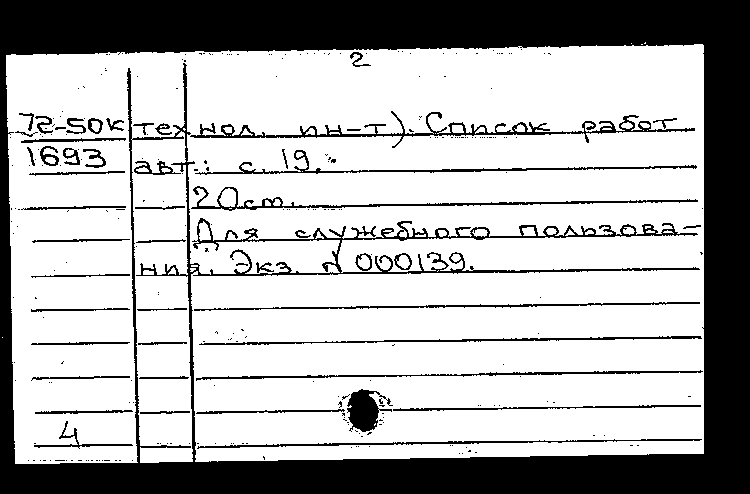 2
72-50к технол. ин-т). Список работ
1693 авт.: с. 19.
20 см.
Для служебного пользова-
ния. Экз. N 000139.
4